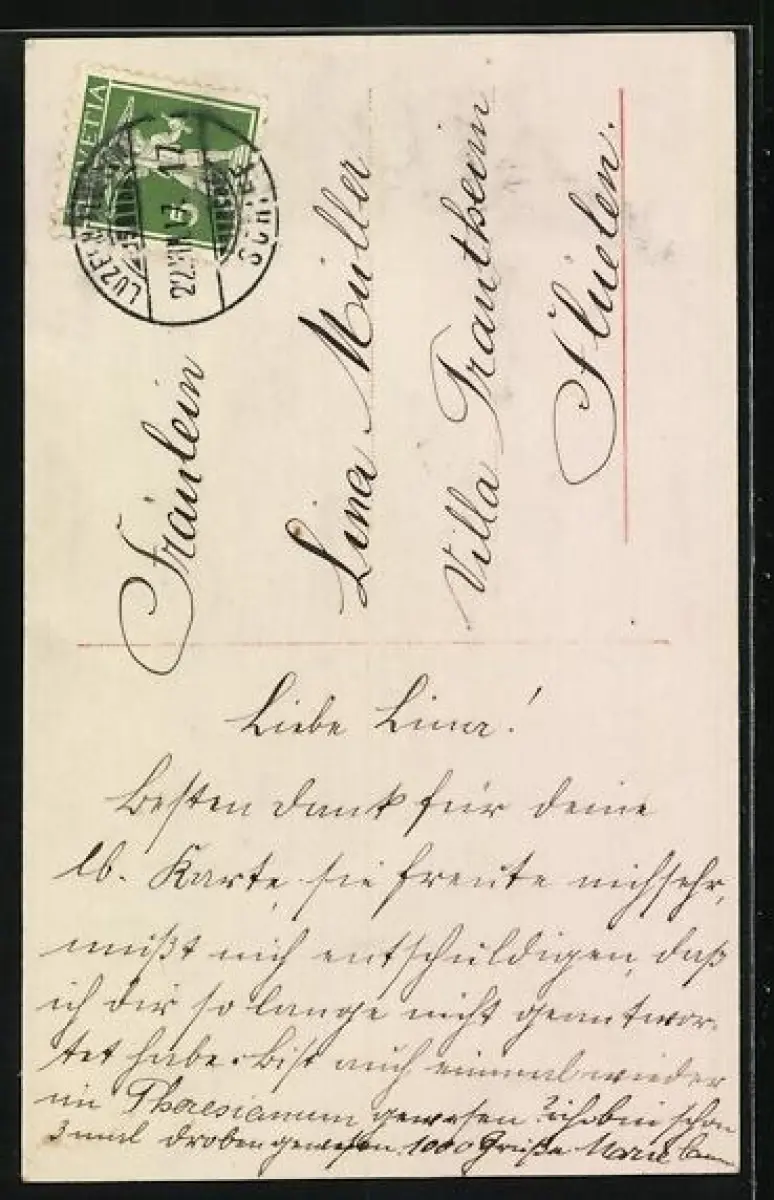 HELVETIA
5
LUZERN
22.VII.13. 17
Fräulein
Lina Müller
Villa Trautheim
Flüelen.
Liebe Lina!
Besten Dank für deine
lb. Karte, sie freute mich sehr,
mußt mich entschuldigen, daß
ich dir so lange nicht geantwor-
tet habe. Bist auch einmal wieder
im Theresianum gewesen? ich bin schon
3 mal droben gewesen. 1000 Grüße Marie